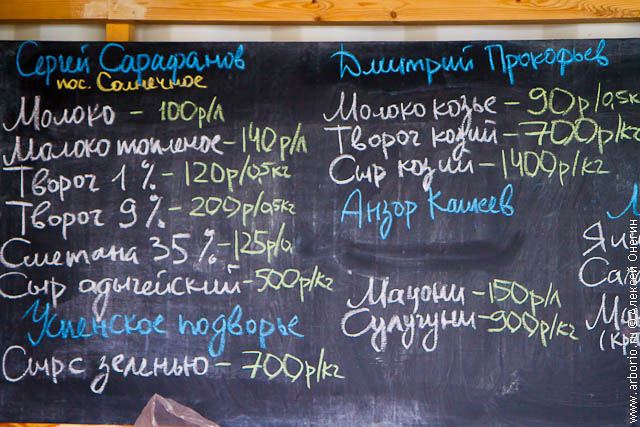 Сергей Сарафанов
пос. Солнечное
Молоко - 100р/л
Молоко топленое - 140р/л
Творог 1% - 120р/0,5кг
Творог 9% - 200р/0,5кг
Сметана 35% - 125р/
Сыр адыгейский - 500р/кг
Успенское подворье
Сыр с зеленью - 700р/кг
Дмитрий Прокофьев
Молоко козье - 90р/0,5к
Творог козий - 700р/кг
Сыр козий - 1400р/кг
Анзор Кашеев
Мацони - 150р/л
Сулугуни - 900р/кг
www.arborio.ru © Алексей Онегин